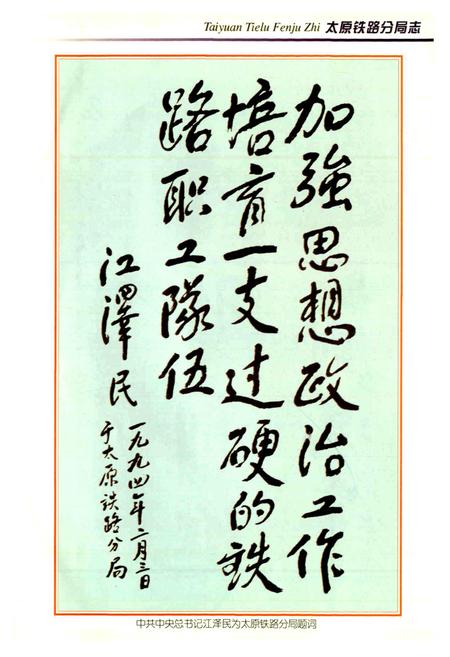 Taiyuan Tielu Fenju Zhi 太原铁路分局志
加強思想政治工作
培育一支过硬的铁
路职工隊伍
江澤民
一九九四年二月三日
于太原铁路分局
中共中央总书记江泽民为太原铁路分局题词